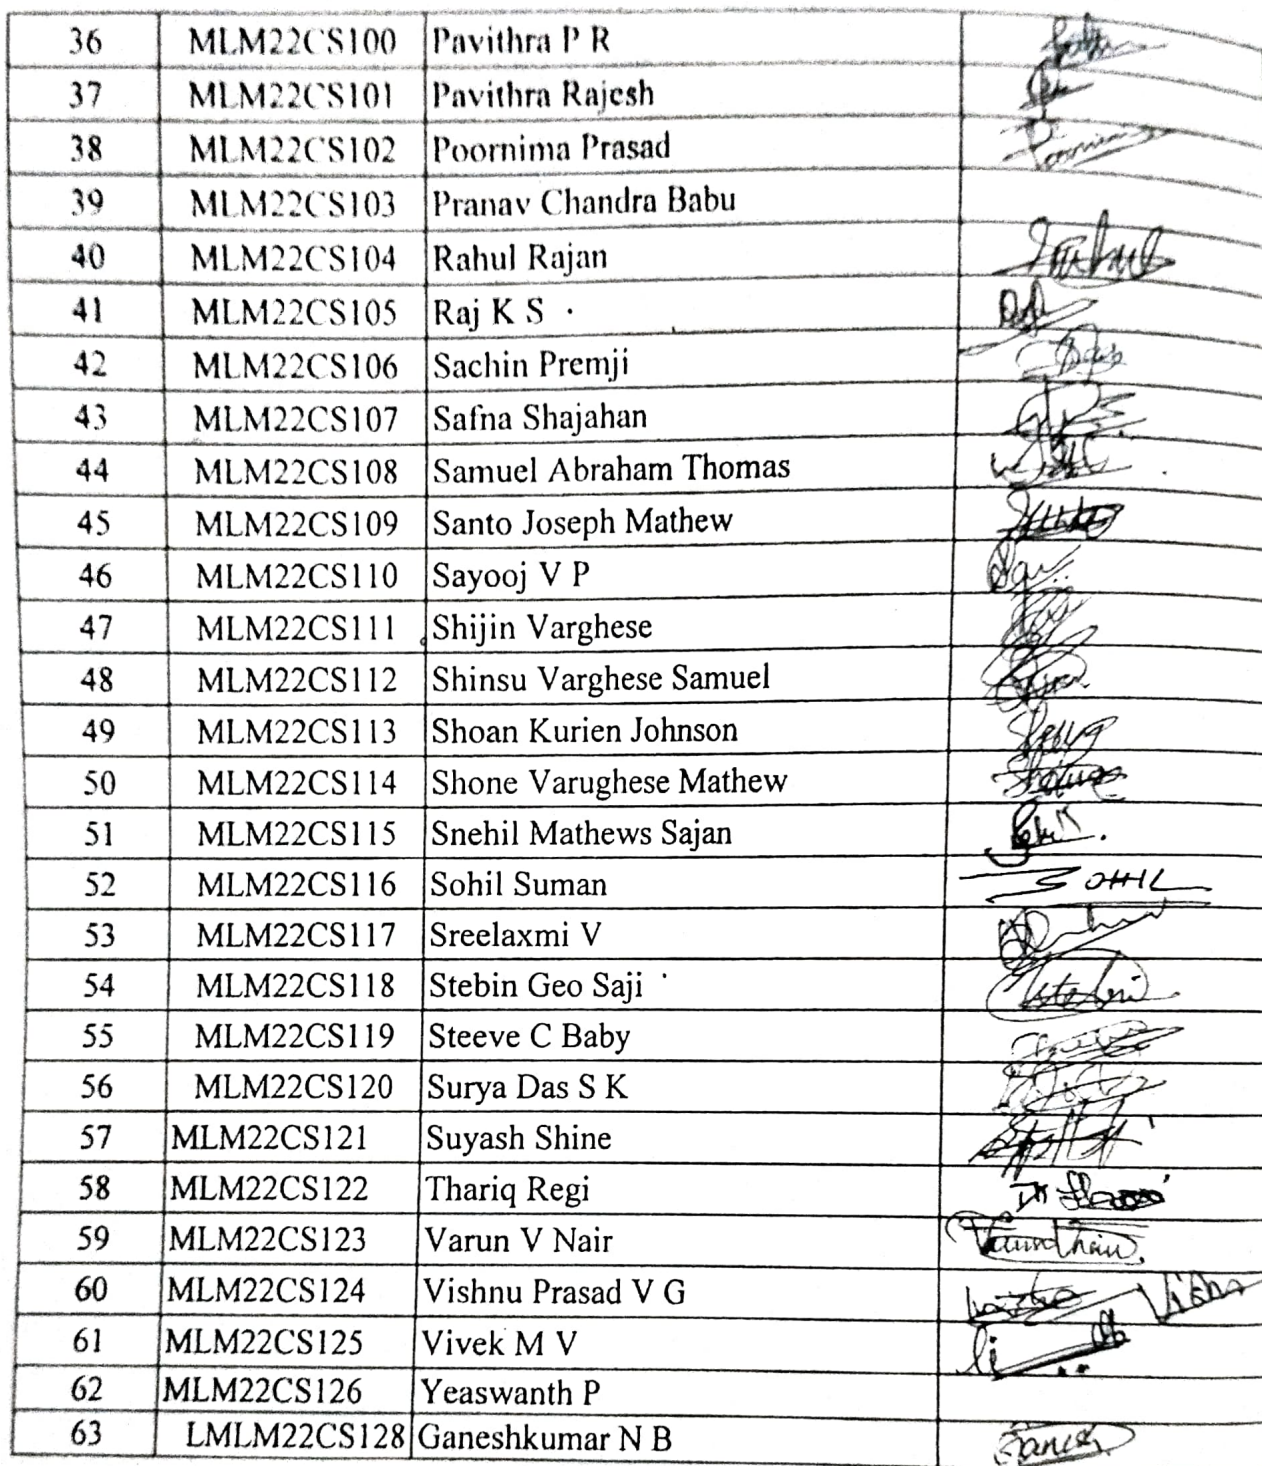 36 MLM22CS100 Pavithra P R
37 MLM22CS101 Pavithra Rajesh
38 MLM22CS102 Poornima Prasad
39 MLM22CS103 Pranav Chandra Babu
40 MLM22CS104 Rahul Rajan
41 MLM22CS105 Raj K S
42 MLM22CS106 Sachin Premji
43 MLM22CS107 Safna Shajahan
44 MLM22CS108 Samuel Abraham Thomas
45 MLM22CS109 Santo Joseph Mathew
46 MLM22CS110 Sayooj V P
47 MLM22CS111 Shijin Varghese
48 MLM22CS112 Shinsu Varghese Samuel
49 MLM22CS113 Shoan Kurien Johnson
50 MLM22CS114 Shone Varughese Mathew
51 MLM22CS115 Snehil Mathews Sajan
52 MLM22CS116 Sohil Suman SOHIL
53 MLM22CS117 Sreelaxmi V
54 MLM22CS118 Stebin Geo Saji
55 MLM22CS119 Steeve C Baby
56 MLM22CS120 Surya Das S K
57 MLM22CS121 Suyash Shine
58 MLM22CS122 Thariq Regi
59 MLM22CS123 Varun V Nair
60 MLM22CS124 Vishnu Prasad V G
61 MLM22CS125 Vivek M V
62 MLM22CS126 Yeaswanth P
63 LMLM22CS128 Ganeshkumar N B